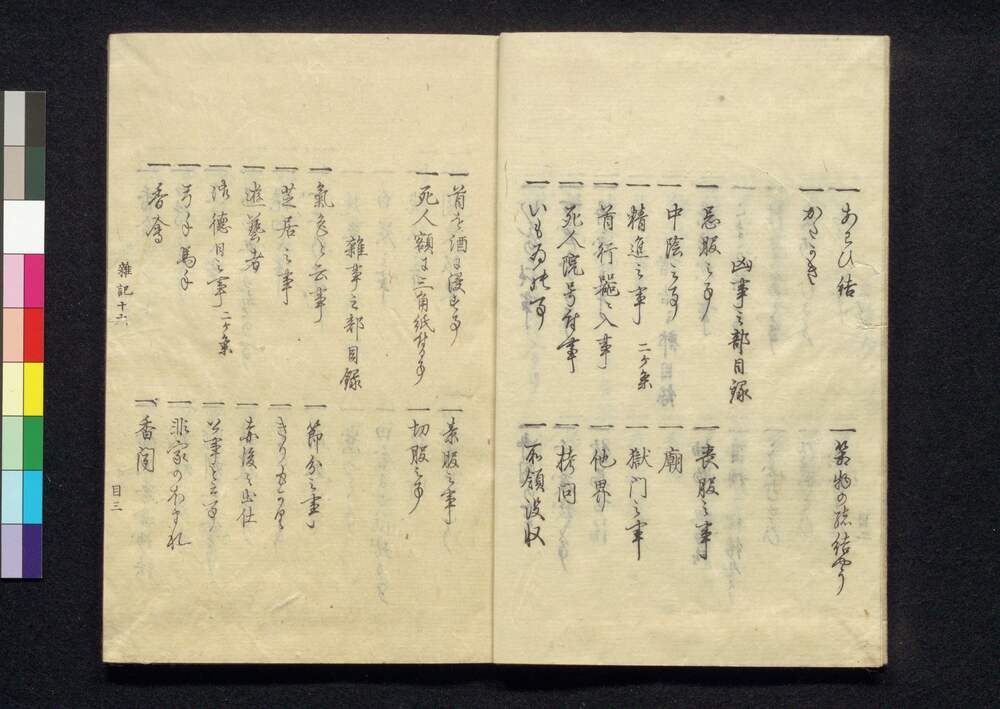 一 あわひ結
一 箱物の緒結やう
一 かさかき
凶事之部目録
一 忌服之事
一 喪服之事
一 中陰之事
一 廟
一 精進之事 二ケ条
一 獄門之事
一 首行器ニ入事
一 他界
一 死人院号付事
一 拷問
一 いもゐの事
一 所領没収
一 首を酒に浸す事
一 素服之事
一 死人額に三角紙付る事
一 切服之事
雑事之部目録
一 氣色と云事
一 節分之事
一 芝居之事
一 きりもぐさ
一 遊藝者
一 赤後之出仕
一 徳日之事 二ケ条
一 公事と云事
一 弓手馬手
一 非家の
一 香奩
一 香閣
雜記十六
目三